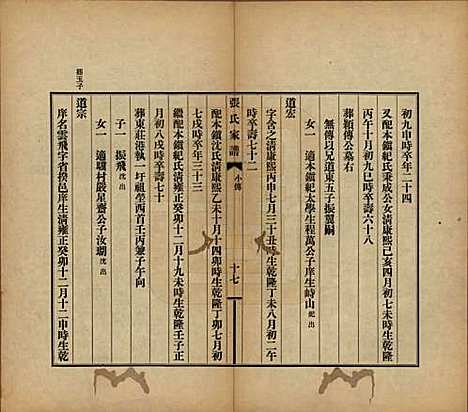 初九申時卒年二十四
又配本鎮紀氏秉成公女清康熙己亥四月初七未時生乾隆
丙午十月初九巳時卒壽六十八
葬穎傳公墓右
無傳以兄道東五子振翼嗣
女一 適本鎮紀太學生程萬公子庠生峙山紀出
道宏
字含之清康熙丙申七月三十丑時生乾隆丁未八月初二午
時卒壽七十二
配本鎮沈氏清康熙乙未十月十四卯時生乾隆丁卯七月初
張氏家譜
小傳
十七
七戌時卒年三十三
繼配本鎮紀氏清雍正癸卯十二月十九未時生乾隆壬子正
月初八戌時卒壽七十
葬東莊港執一圩祖塋西首壬丙兼子午向
子一 振飛沈出
女一 適驥村嚴星齋公子汝瑚沈出
道宗
庠名雲飛字省揆邑庠生清雍正癸卯十二月十二申時生乾
蔣玉子